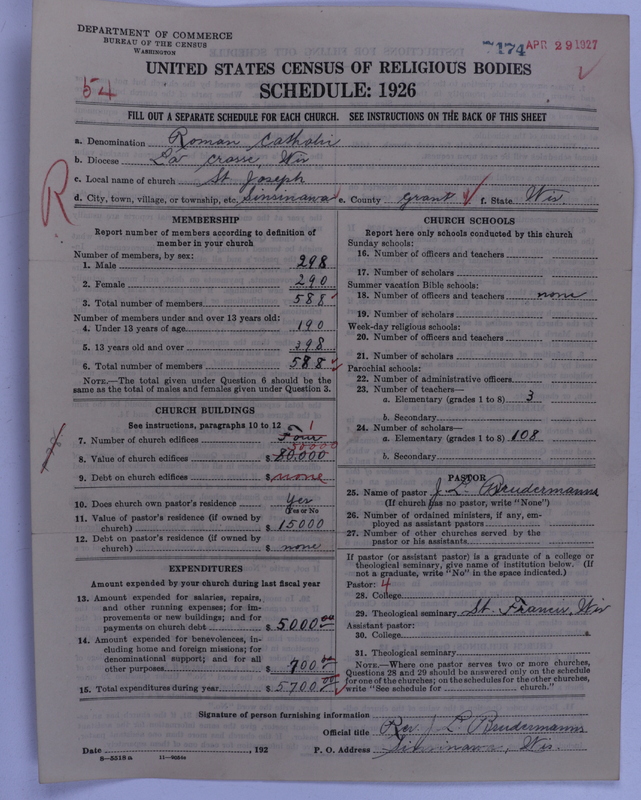 DEPARTMENT OF COMMERCE
BUREAU OF THE CENSUS
WASHINGTON
7174 APR 29 1927
54
UNITED STATES CENSUS OF RELIGIOUS BODIES
SCHEDULE: 1926
FILL OUT A SEPARATE SCHEDULE FOR EACH CHURCH. SEE INSTRUCTIONS ON THE BACK OF THIS SHEET
a. Denomination Roman Catholic
b. Diocese La Crosse, Wis
c. Local name of church St Joseph
d. City, town, village, or township, etc. Sinsinawa e. County Grant f. State Wis
R
MEMBERSHIP
Report number of members according to definition of
member in your church
Number of members, by sex:
1. Male 298
2. Female 290
3. Total number of members 588
Number of members under and over 13 years old:
4. Under 13 years of age 190
5. 13 years old and over 398
6. Total number of members 588
NOTE.—The total given under Question 6 should be
same as the total of males and females given under Question 3.
CHURCH BUILDINGS
See instructions, paragraphs 10 to 12
7. Number of church edifices Four 1
8. Value of church edifices $ 80,000
9. Debt on church edifices $ none
10. Does church own pastor's residence Yes
(Yes or No
11. Value of pastor's residence (if owned by
church) $ 15000
12. Debt on pastor's residence (if owned by
church) $ none
EXPENDITURES
Amount expended by your church during last fiscal year
13. Amount expended for salaries, repairs,
and other running expenses; for im-
provements or new buildings; and for
payments on church debt $ 5000.00
14. Amount expended for benevolences, in-
cluding home and foreign missions; for
denominational support; and for all
other purposes $ 700.00
15. Total expenditures during year $ 5700.00
CHURCH SCHOOLS
Report here only schools conducted by this church
Sunday schools:
16. Number of officers and teachers
17. Number of scholars
Summer vacation Bible schools:
18. Number of officers and teachers none
19. Number of scholars
Week-day religious schools:
20. Number of officers and teachers
21. Number of scholars
Parochial schools:
22. Number of administrative officers
23. Number of teachers—
a. Elementary (grades 1 to 8) 3
b. Secondary
24. Number of scholars—
a. Elementary (grades 1 to 8) 108
b. Secondary
PASTOR
25. Name of pastor J L Breudermanns
(If church has no pastor, write "None")
26. Number of ordained ministers, if any, em-
ployed as assistant pastors
27. Number of other churches served by the
pastor or his assistants
If pastor (or assistant pastor) is a graduate of a college or
theological seminary, give name of institution below. (If
not a graduate, write "No" in the space indicated.)
Pastor: 4
28. College
29. Theological seminary St. Francis, Wis
Assistant pastor:
30. College
31. Theological seminary
NOTE.—Where one pastor serves two or more churches,
Questions 28 and 29 should be answered only on the schedule
for one of the churches; on the schedules for the other churches,
write "See schedule for church."
Signature of person furnishing information
Official title Rev J L Breudermanns
Date , 192 P. O. Address Sinsinawa, Wis.
8—5518a 11—9084c